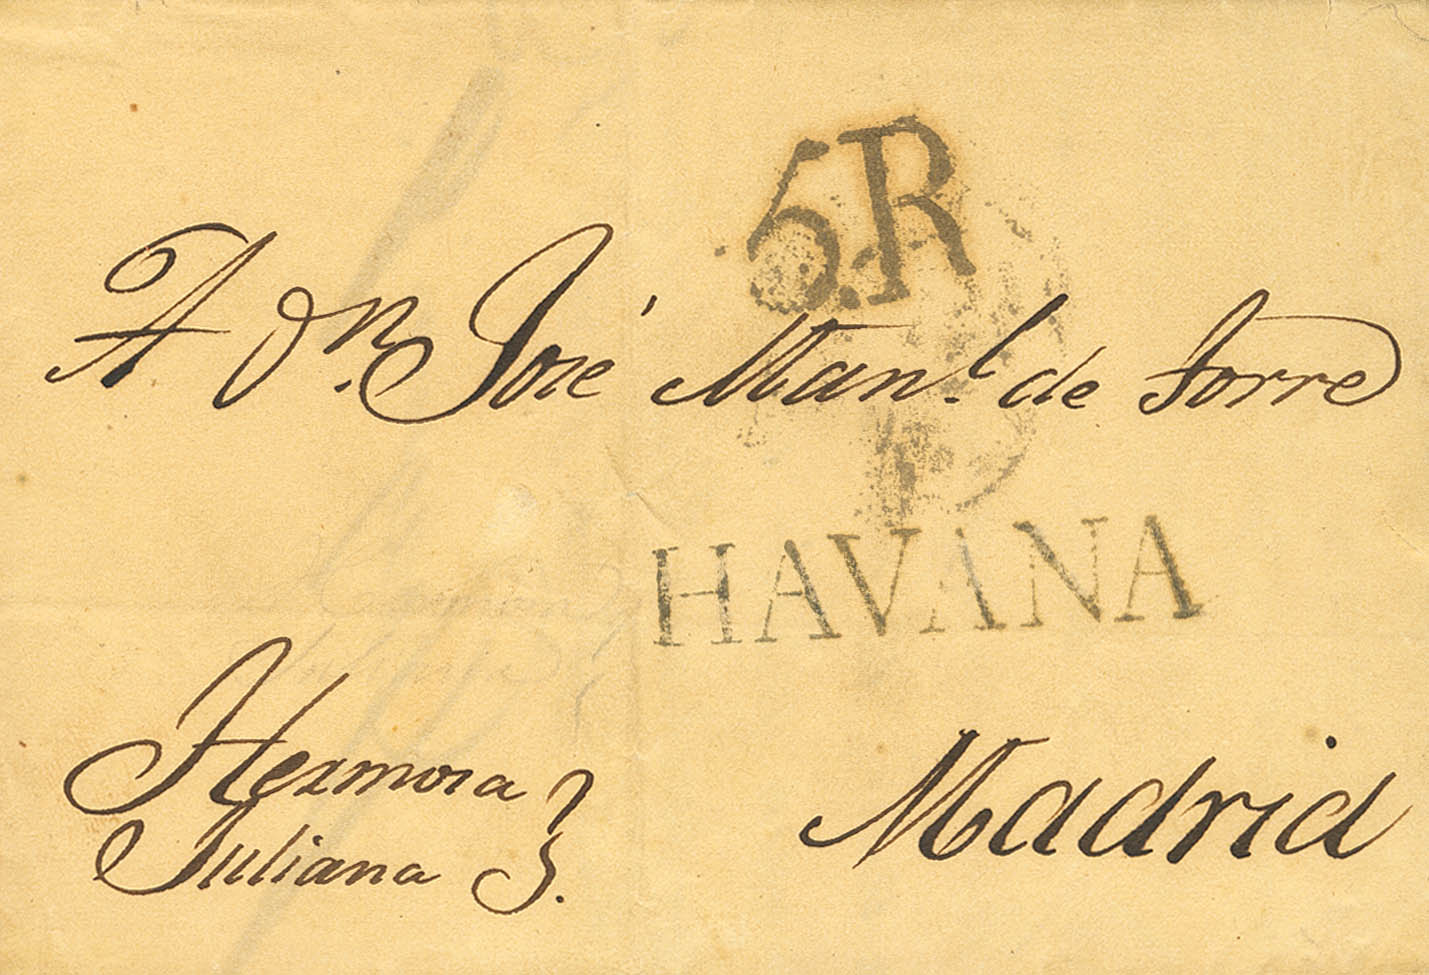 5.R
A Dn. José Manl. de Torre
HAVANA
Hermosa
Juliana
Madrid